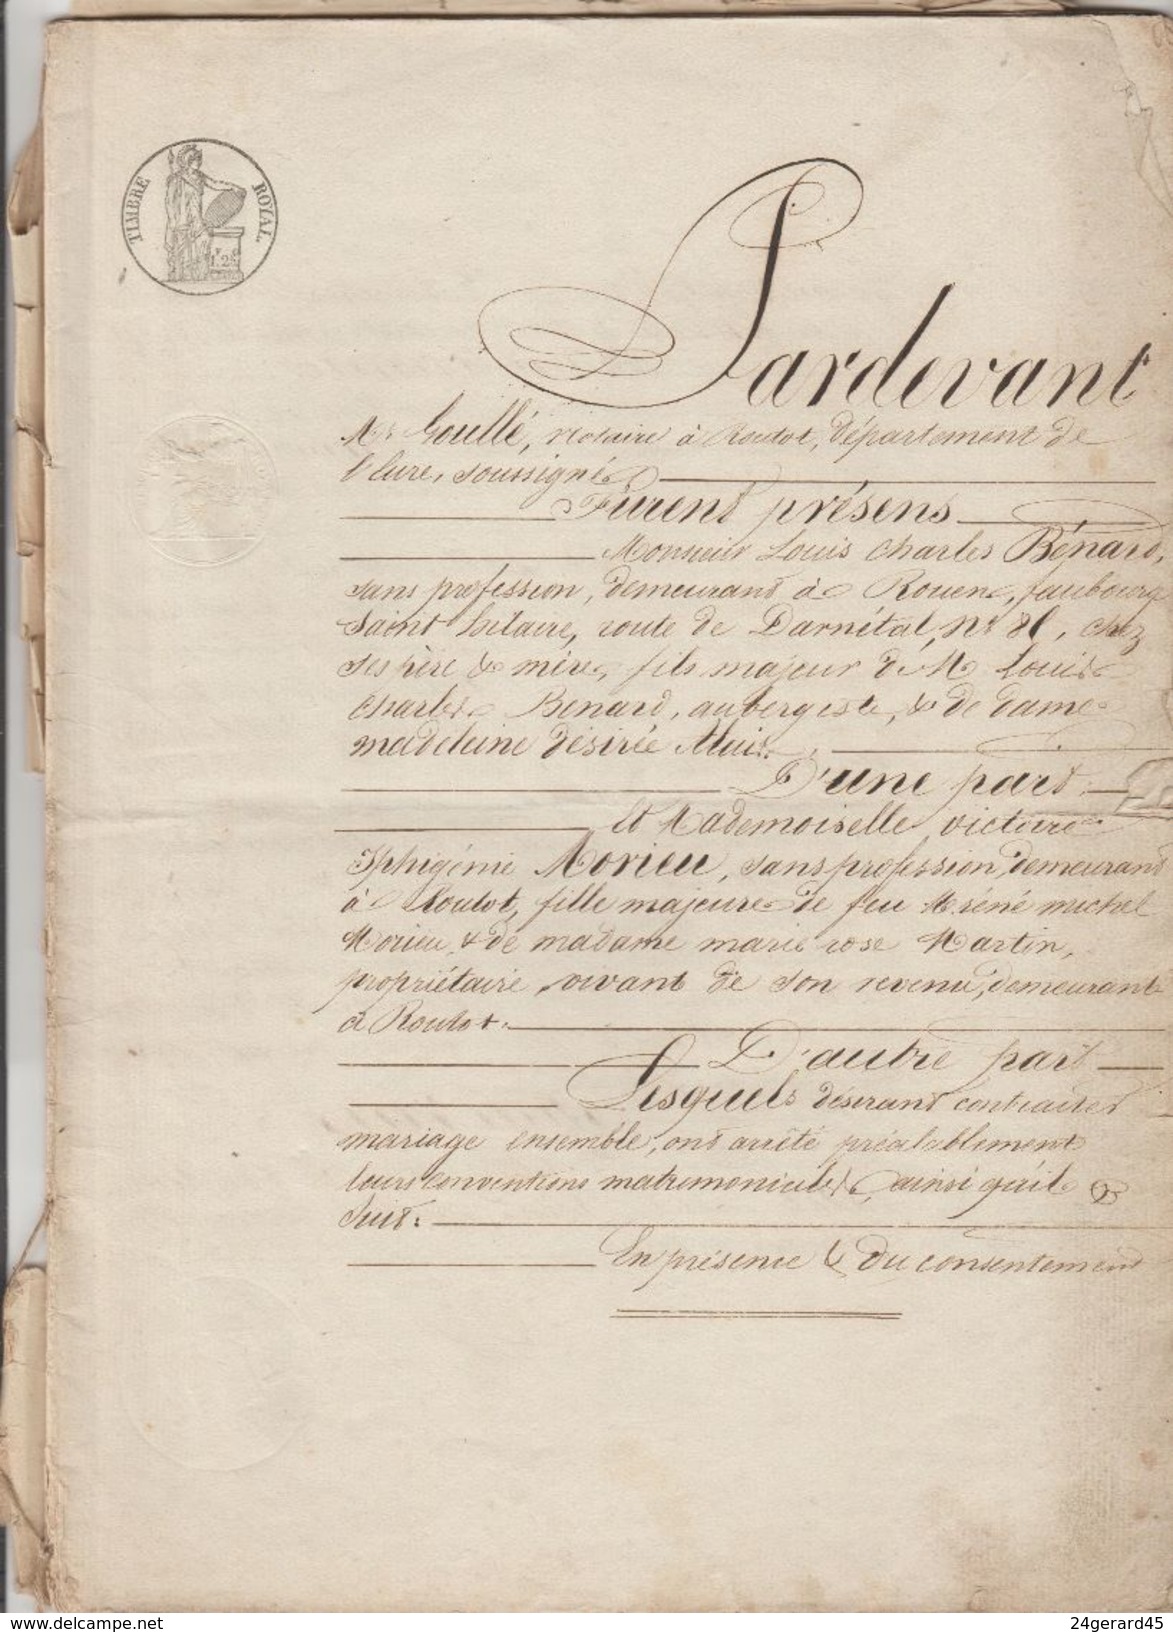 TIMBRE ROYAL
Pardevant
Me Goullé, notaire à Routot, département de
l'Eure, soussigné
Furent présens
Monsieur Louis Charles Bénard,
sans profession, demeurant à Rouen, faubourg
Saint hilaire, route de Darnétal, No 81, chez
ses père & mère, fils majeur de M Louis
Charles Bénard, aubergiste, & de dame
madeleine désirée
D'une part,
Et Mademoiselle victoire
Iphigénie Morieu, sans profession, demeurant
à Routot, fille majeure de feu M réné michel
Morieu, & de madame marie rose Martin,
propriétaire, vivant de son revenu, demeurant
à Routot.
D'autre part
Lesquels désirant contracter
mariage ensemble, ont arrêté préalablement
leurs conventions matrimoniales, ainsi qu'il
suit:
En présence & du consentement
delcampe.net
24gerard45